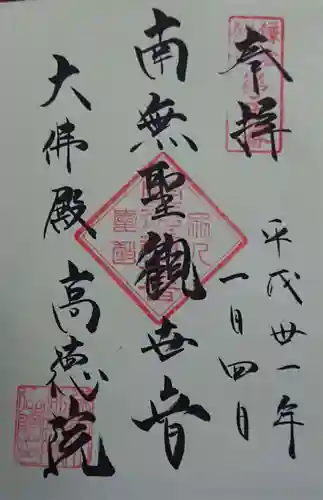 奉拝
平成丗一年
一月四日
南無聖観世音
大佛殿 高徳院